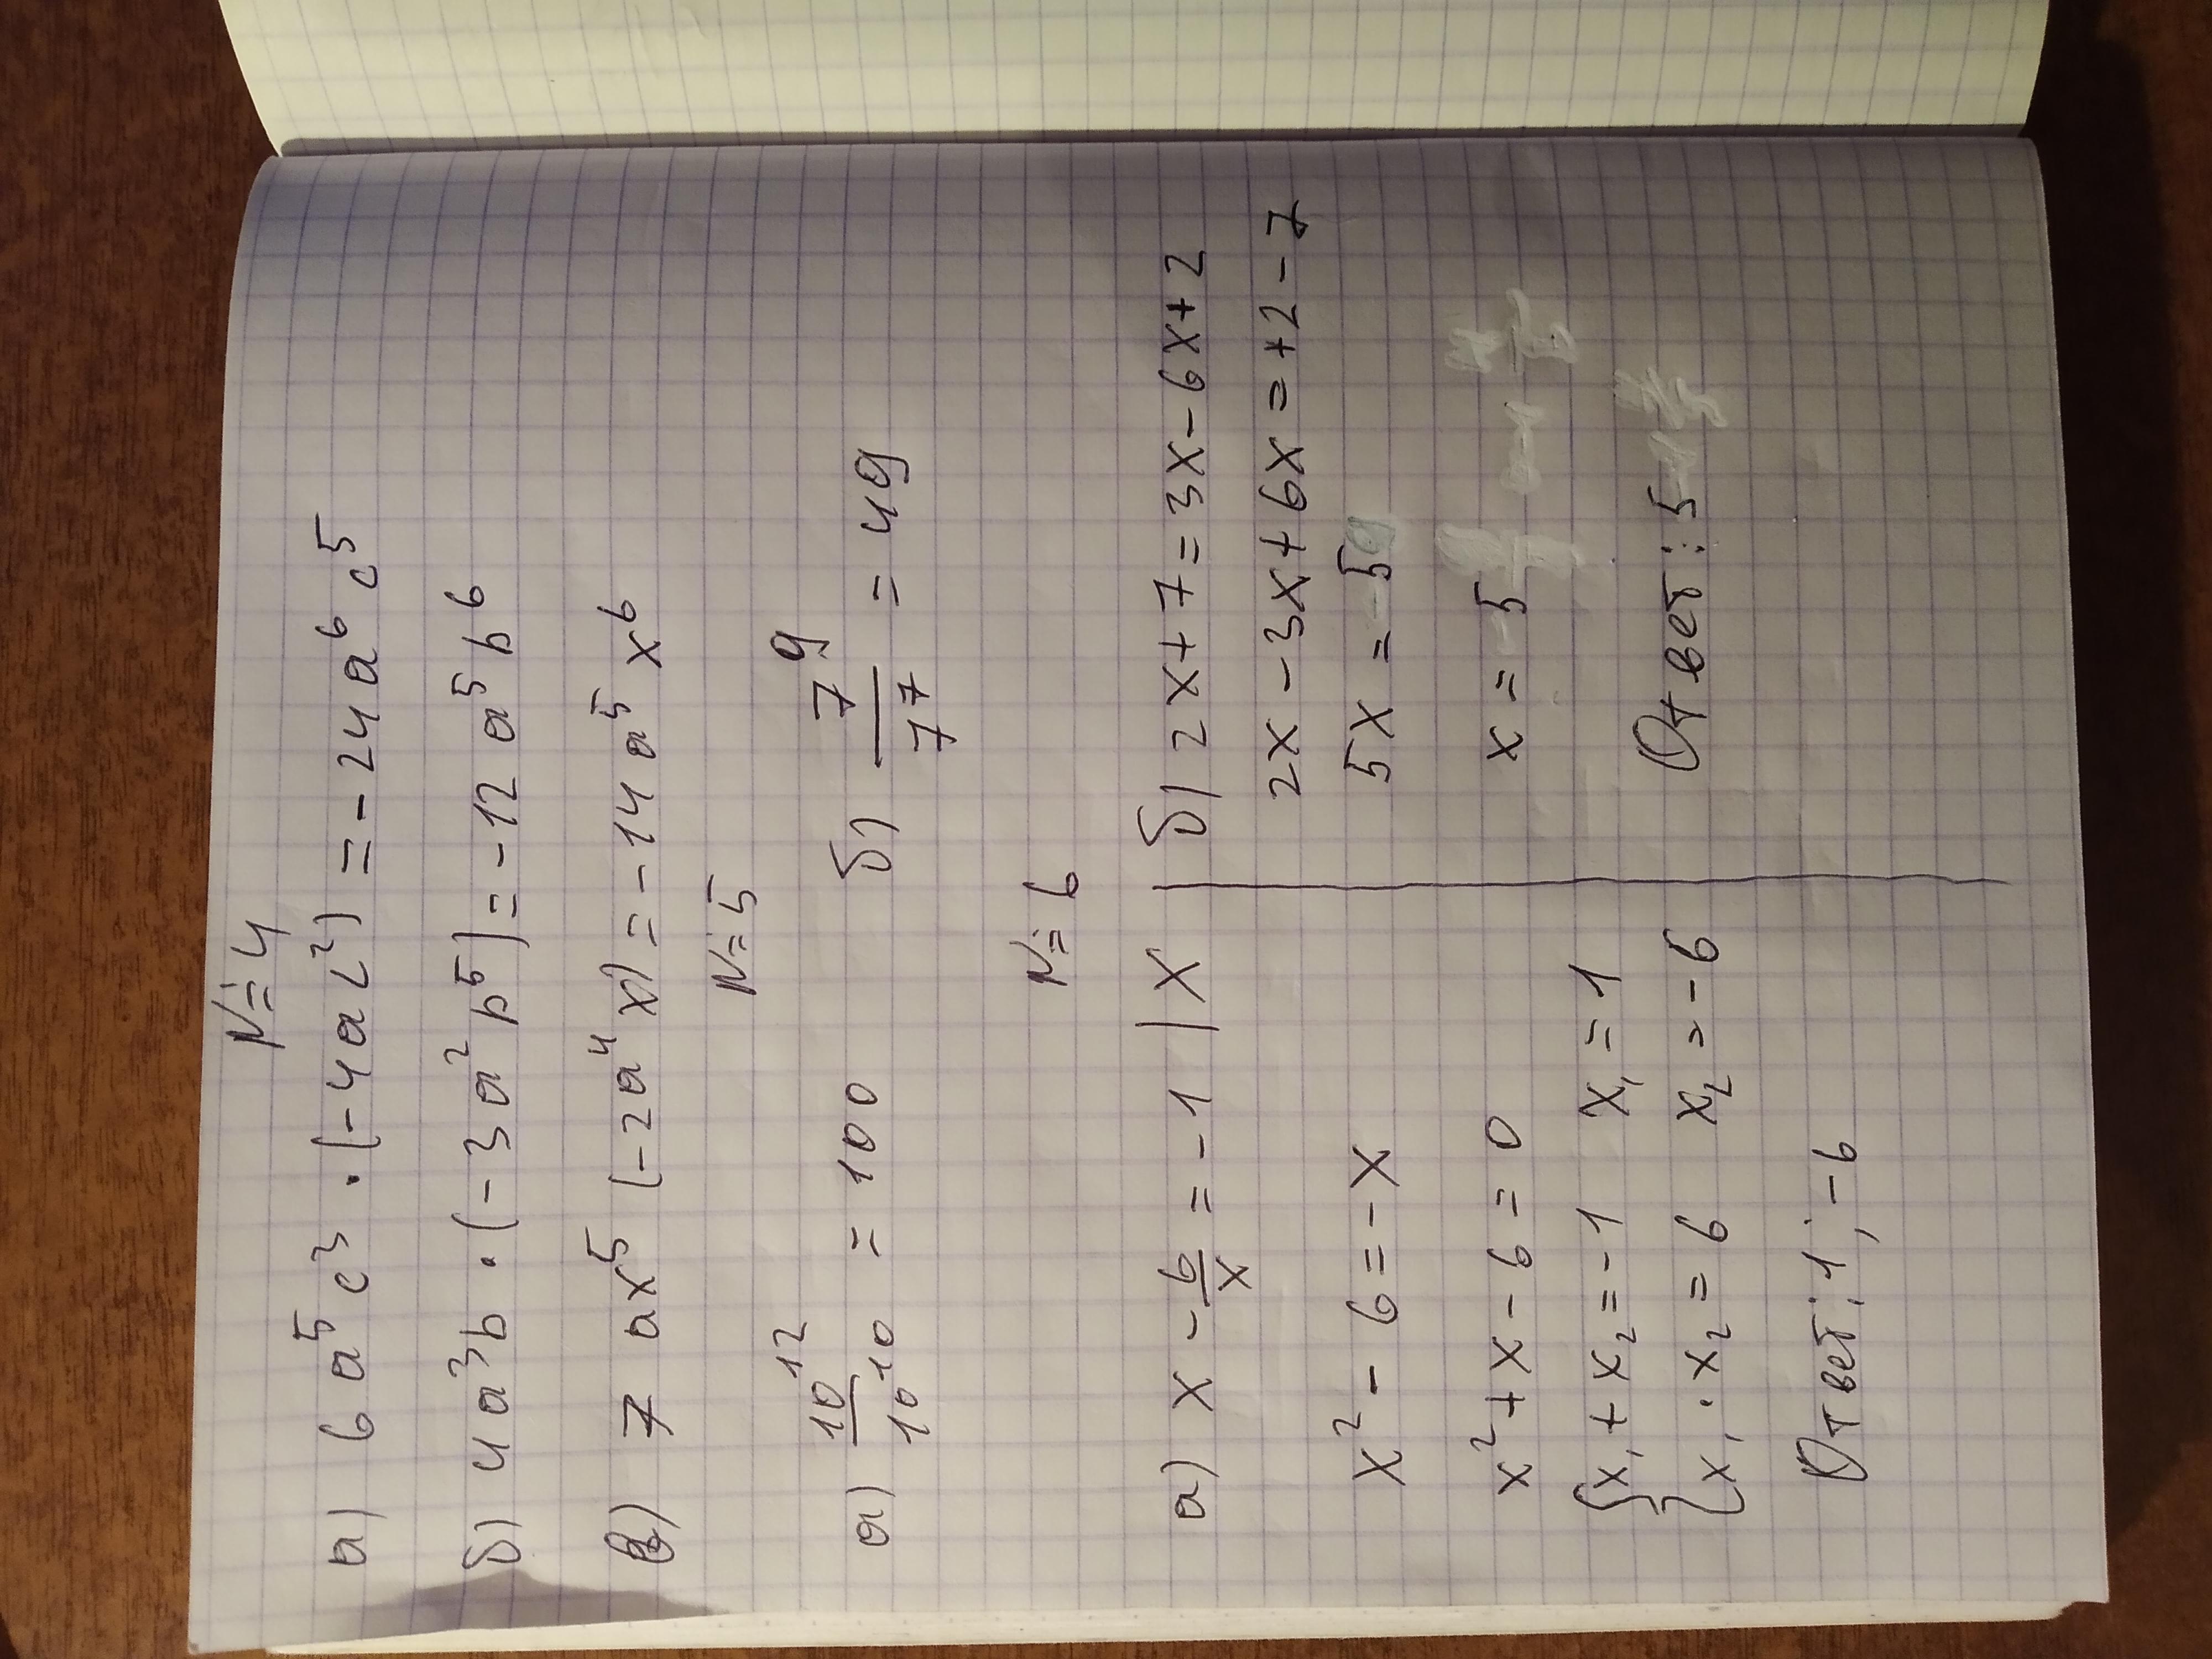 №4
а) 6a⁵c³ · (-4ac²) = -24a⁶c⁵
б) 4a³b · (-3a²b⁵) = -12a⁵b⁶
в) 7ax⁵(-2a⁴x) = -14a⁵x⁶
№5
а) 10¹²/10¹⁰ = 100 б) 7⁹/7⁷ = 49
№6
а) x - 6/x = -1 | x
x² - 6 = -x
x² + x - 6 = 0
{x₁ + x₂ = -1 x₁ = 1
{x₁ · x₂ = 6 x₂ = -6
Ответ: 1; -6
б) 2x + 7 = 3x - 6x + 2
2x - 3x + 6x = +2 - 7
5x = -5
x = -5
Ответ: 5